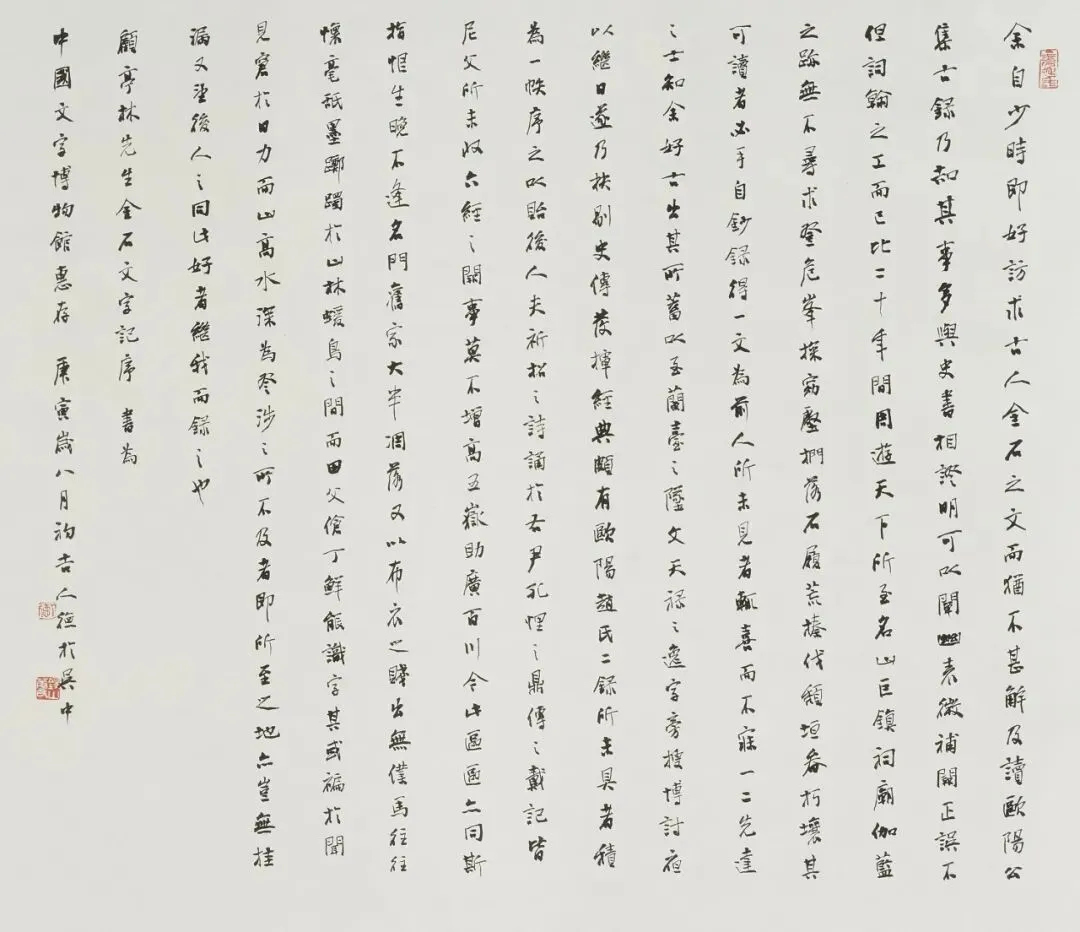 余自少時即好訪求古人金石之文而猶不甚解及讀歐陽公
集古錄乃知其事多與史書相證明可以闡幽表微補闕正誤不
但詞翰之工而已比二十年間周遊天下所至名山巨鎮祠廟伽藍
之跡無不尋求登危峯探窈壑捫落石履荒榛伐頹垣畚朽壤其
可讀者必手自鈔錄得一文為前人所未見者輒喜而不寐一二先達
之士知余好古出其所蓄以至蘭臺之墜文天祿之逸字旁搜博討夜
以繼日遂乃抉剔史傳發揮經典頗有歐陽趙氏二錄所未具者積
為一帙序之以貽後人夫祈招之詩誦於右尹孔悝之鼎傳之戴記皆
尼父所未收六經之闕事莫不增高五嶽助廣百川今此區區亦同斯
指恨生晚不逢名門舊家大半凋落又以布衣之賤出無僕馬往往
懷毫舐墨躑躅於山林猨鳥之間而田父傖丁鮮能識字其或褊於聞
見窘於日力而山高水深為登涉之所不及者即所至之地亦豈無挂
漏又望後人之同此好者繼我而錄之也
顧亭林先生金石文字記序 書為
中國文字博物館惠存 庚寅歲八月初吉人德於吳中